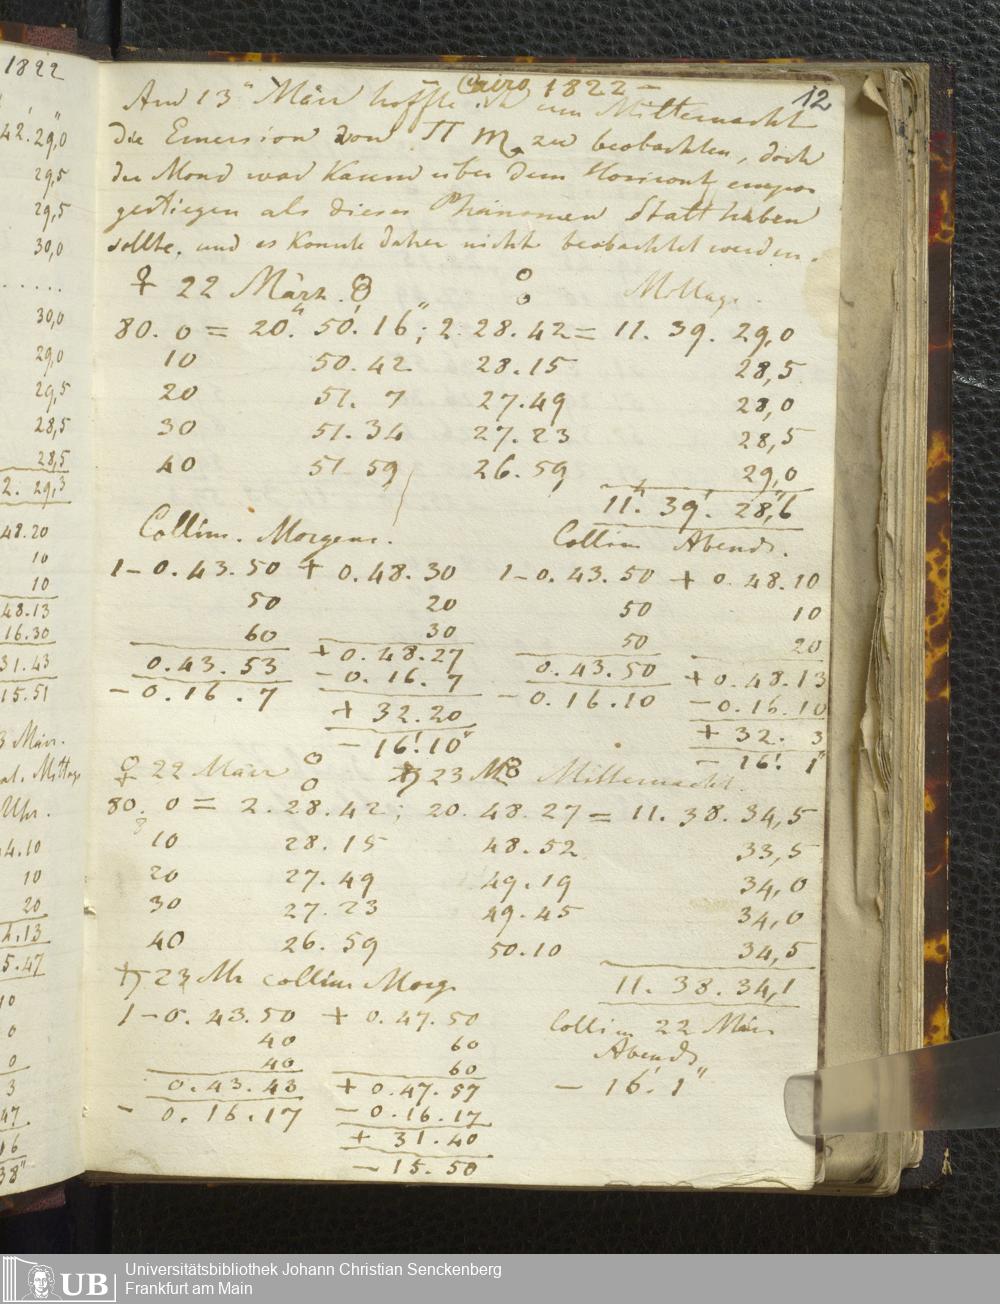 1822
42.29,0
29,5
29,5
30,0
. . . . .
30,0
29,0
29,5
28,5
28,5
2. 29,3
48.20
10
10
48.13
16.30
31.43
15.51
3 März.
Mittag
Uhr.
4.10
10
20
4.13
5.47
10
0
0
3
47
16
38"
Cairo 1822 –
12
Am 13ⁿ März hoffte ich um Mitternacht
die Emersion von π ♏ zu beobachten, doch
der Mond war kaum über dem Horizont empor
gestiegen als dieses Phänomen Statt haben
sollte, und es konnte daher nicht beobachtet werden.
♀ 22 März. Mittags.
80. 0 = 20. 50. 16; 2. 28. 42 = 11. 39. 29,0
10 50. 42 28. 15 28,5
20 51. 7 27. 49 28,0
30 51. 34 27. 23 28,5
40 51 59 26. 59 29,0
11. 39. 28,6
Collim. Morgens. Collim Abends.
1 – 0. 43. 50 + 0. 48. 30 1 – 0. 43. 50 + 0. 48. 10
50 20 50 10
60 30 50 20
0. 43. 53 + 0. 48. 27 0. 43. 50 + 0. 48. 13
– 0. 16. 7 – 0. 16. 7 – 0. 16. 10 – 0. 16. 10
+ 32. 20 + 32. 3
– 16' 10" – 16' 1"
♀ 22 März ♄ 23 Mz Mitternacht.
80. 0 = 2. 28. 42; 20. 48. 27 = 11. 38. 34,5
10 28. 15 48. 52 33,5
20 27. 49 49. 19 34,0
30 27. 23 49. 45 34,0
40 26. 59 50. 10 34,5
11. 38. 34,1
♄ 23 Mz collim Morg.
1 – 0. 43. 50 + 0. 47. 50 Collim 22 März
40 60 Abends
40 60 – 16' 1"
0. 43. 43 + 0. 47. 57
– 0. 16. 17 – 0. 16. 17
+ 31. 40
– 15. 50
UB Universitätsbibliothek Johann Christian Senckenberg
Frankfurt am Main